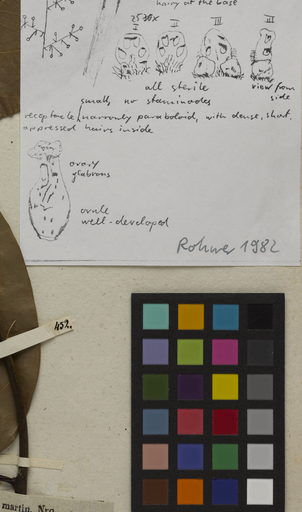 hairy at the base
25-30x
I
II
III
III
all sterile
view from
side
small, no staminodes
receptacle narrowly paraboloid, with dense, short,
appressed hairs inside
ovary
glabrous
ovule
well-developed
Rohwer 1982
452.
martin. Nro.